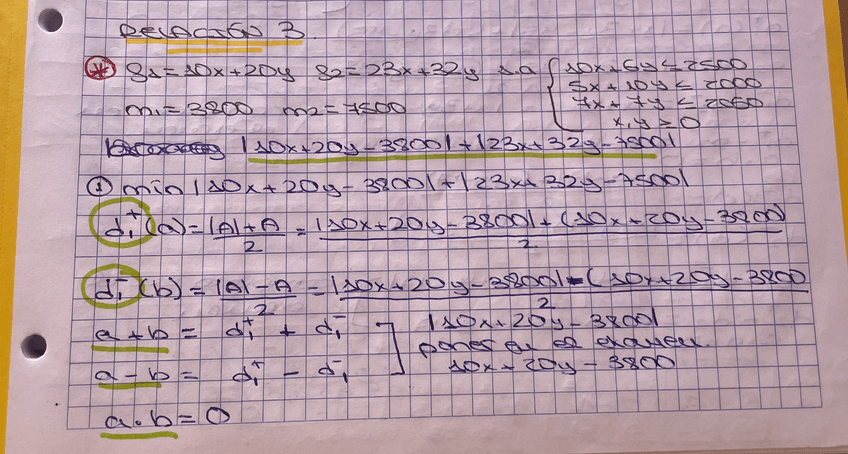 RELACIÓN 3
* g1=10x+20y g2=23x+32y s.a { 10x+6y≤2500
5x+10y≤2000
m1=3800 m2=7500 7x+7y≤2050
x,y≥0
|10x+20y-3800|+|23x+32y-7500|
① min |10x+20y-3800|+|23x+32y-7500|
d1+ (a)=|A|+A/2 = |10x+20y-3800|+(10x+20y-3800)/2
d1- (b)=|A|-A/2 = |10x+20y-3800|-(10x+20y-3800/2
a+b = d1+ + d1- ] |10x+20y-3800|
pones en el examen
a-b = d1+ - d1- 10x+20y-3800
a·b=0